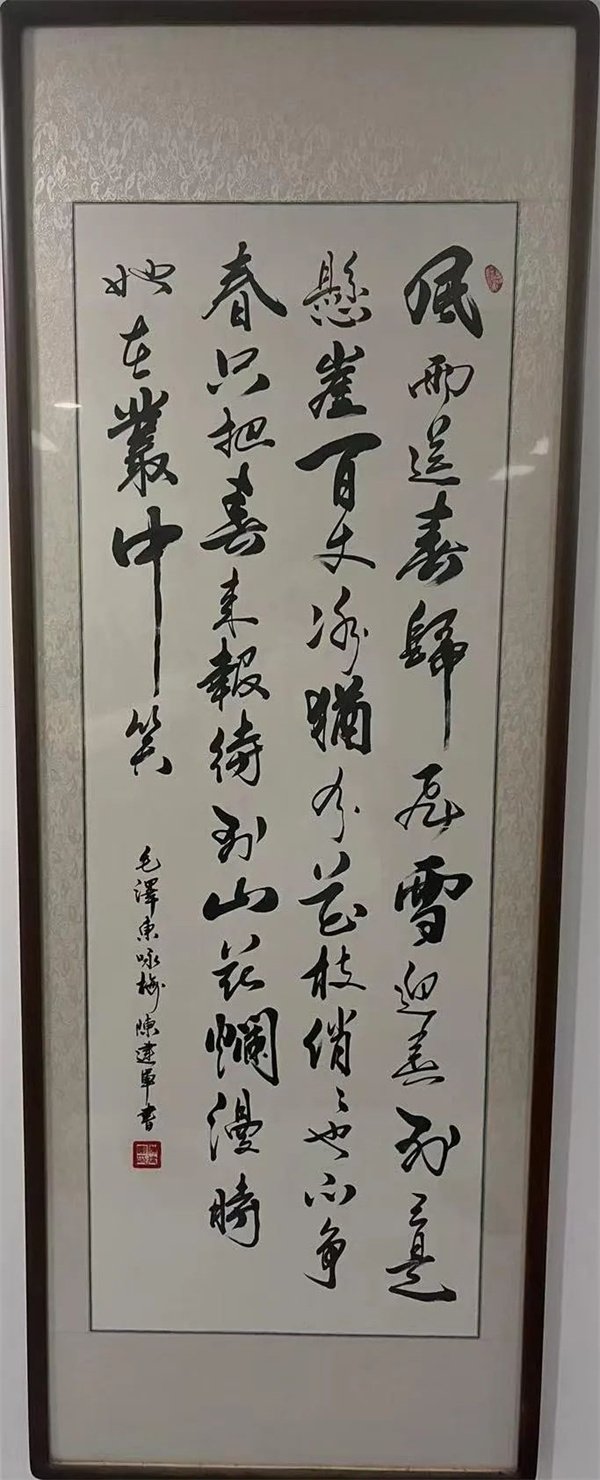 風雨送春歸飛雪迎春到已是
懸崖百丈冰猶有花枝俏〻也不争
春只把春来報待到山花爛漫時
她在叢中笑
毛澤東咏梅 陳建軍書